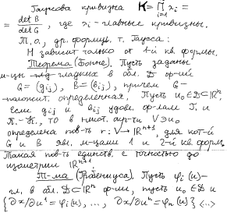 Гауссова кривизна K = ∏ λi =
= det B / det G, где λi - главные кривизны.
Т.о., др. формул. т. Гаусса:
К зависит только от 1-й кв. формы.
Теорема (Бонне). Пусть заданы
м-цы гладких в обл. D ф-ий
G = (gij), B = (bij), причем G -
положит. определенная. Пусть u0 ∈ D ⊂ Rⁿ,
если gij и bij удовл. ф-лам Г. и
П.-К., то в некот. окр-ти V ∋ u0
определена пов-ть r: V → Rⁿ⁺¹, для кот-й
G и B явл. м-цами 1 и 2-й кв. форм.
Такая пов-ть единств. с точностью до
изометрии Rⁿ⁺¹
Т-ма (Фробениуса). Пусть φi(u) -
гл. в обл. D ⊂ Rⁿ ф-ии, пусть u0 ∈ D и
{∂x/∂u¹ = φ1(u), ..., ∂x/∂uⁿ = φn(u)} <...>